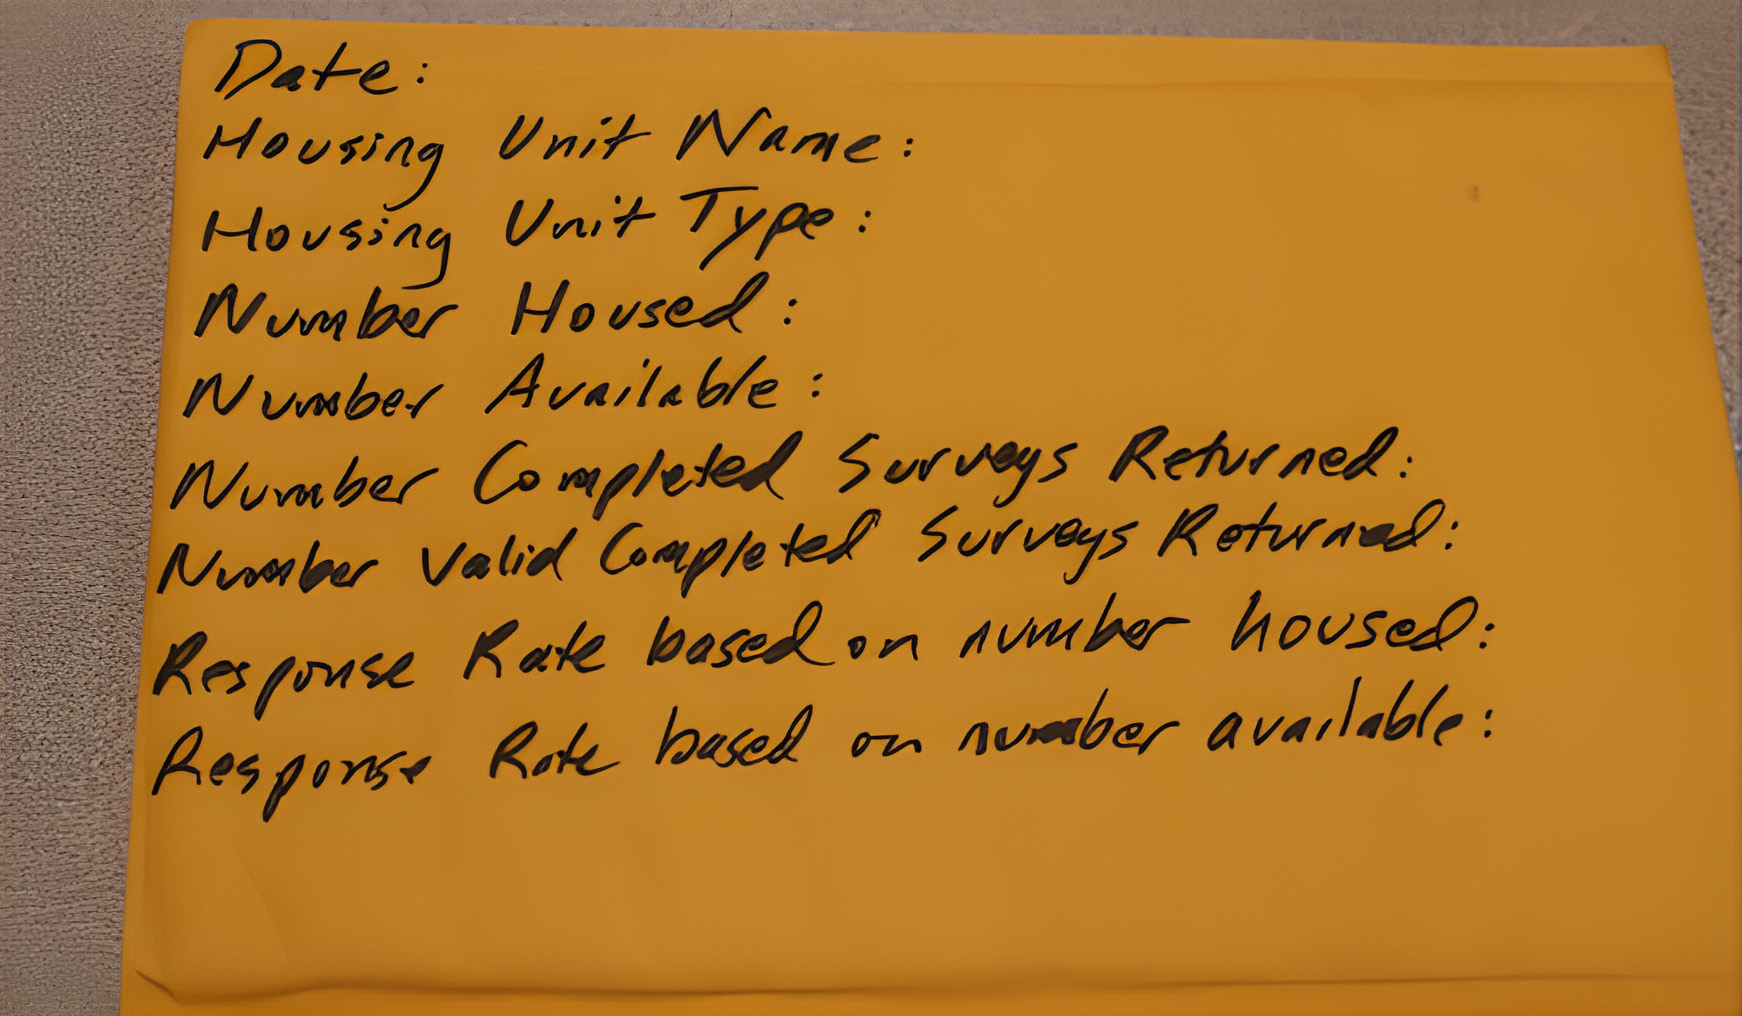 Date:
Housing Unit Name:
Housing Unit Type:
Number Housed:
Number Available:
Number Completed Surveys Returned:
Number Valid Completed Surveys Returned:
Response Rate based on number housed:
Response Rate based on number available: